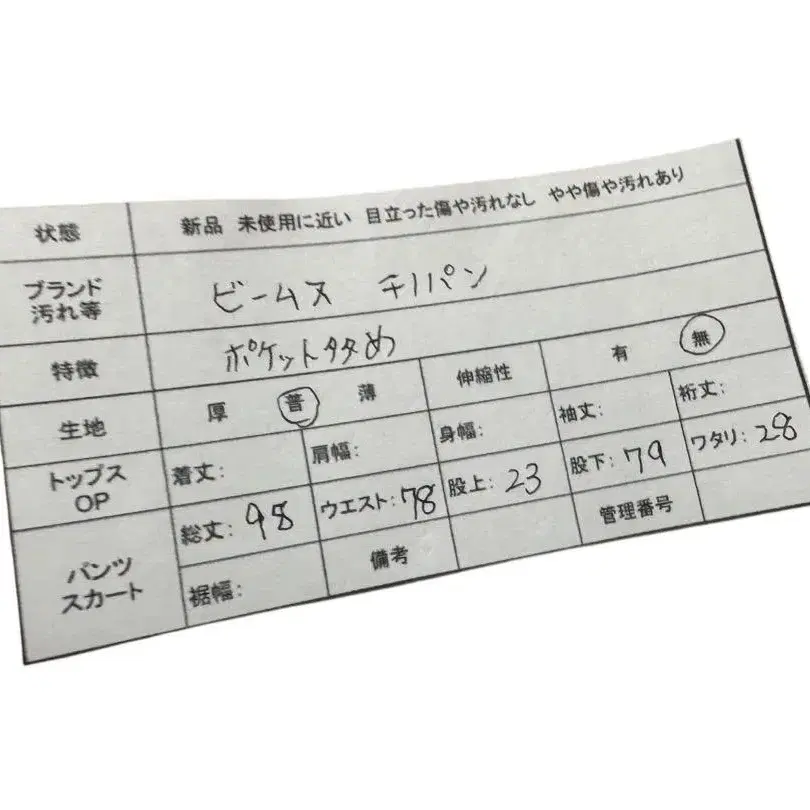 状態 新品 未使用に近い 目立った傷や汚れなし やや傷や汚れあり
ブランド
汚れ等
ビームス チノパン
特徴 ポケットタタめ
生地 厚 普 薄 伸縮性 有 無
トップス
OP
着丈: 肩幅: 身幅: 袖丈: 裄丈:
パンツ
スカート
総丈: 98 ウエスト: 78 股上: 23 股下: 79 ワタリ: 28
裾幅: 備考 管理番号